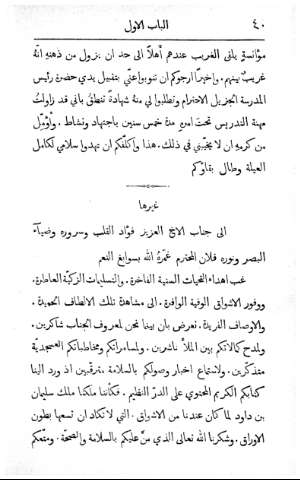 ٤٠ الباب الاول
مؤانستهِ يلقى الغريب عندهم أهلًا الى حد ان يزول من ذهنهِ انهُ
غريب بينهم. واخيرًا ارجوكم ان تنوبوا عني بتقبيل يدي حضرة رئيس
المدرسة الجزيل الاحترام وتطلبوا لي منهُ شهادة تنطق باني قد زاولت
مهنة التدريس تحت امرهِ مدة خمس سنين باجتهاد ونشاط. وأؤمل
من كرمهِ ان لا يخيبني في ذلك. هذا واكلفكم ان تهدوا سلامي لكامل
العيلة وطال بقاؤكم
غيرها
الى جناب الاخ العزيز فؤاد القلب وسروره وضياء
البصر ونوره فلان المحترم غمرهُ الله بسوابغ النعم
غب اهداء التحيات السنية الفاخرة. والتسليمات الزكية العاطرة.
ووفور الاشواق الوفية الوافرة. الى مشاهدة تلك الالطاف الحميدة.
والاوصاف الفريدة. نعرض بان بينا نحن لمعروف الجناب شاكرين.
ولمدح كمالاتكم بين الملأ ناشرين. ولمسامراتكم ومخاطباتكم العسجدية
متذكرين. ولاستماع اخبار وصولكم بالسلامة مترقبين اذ ورد الينا
كتابكم الكريم المحتوي على الدر النظيم. فكأننا ملكنا ملك سليمان
بن داود لما كان عندنا من الاشواق. التي لا تكاد ان تسعها بطون
الاوراق. وشكرنا الله تعالى الذي منّ عليكم بالسلامة والصحة. ومتعكم